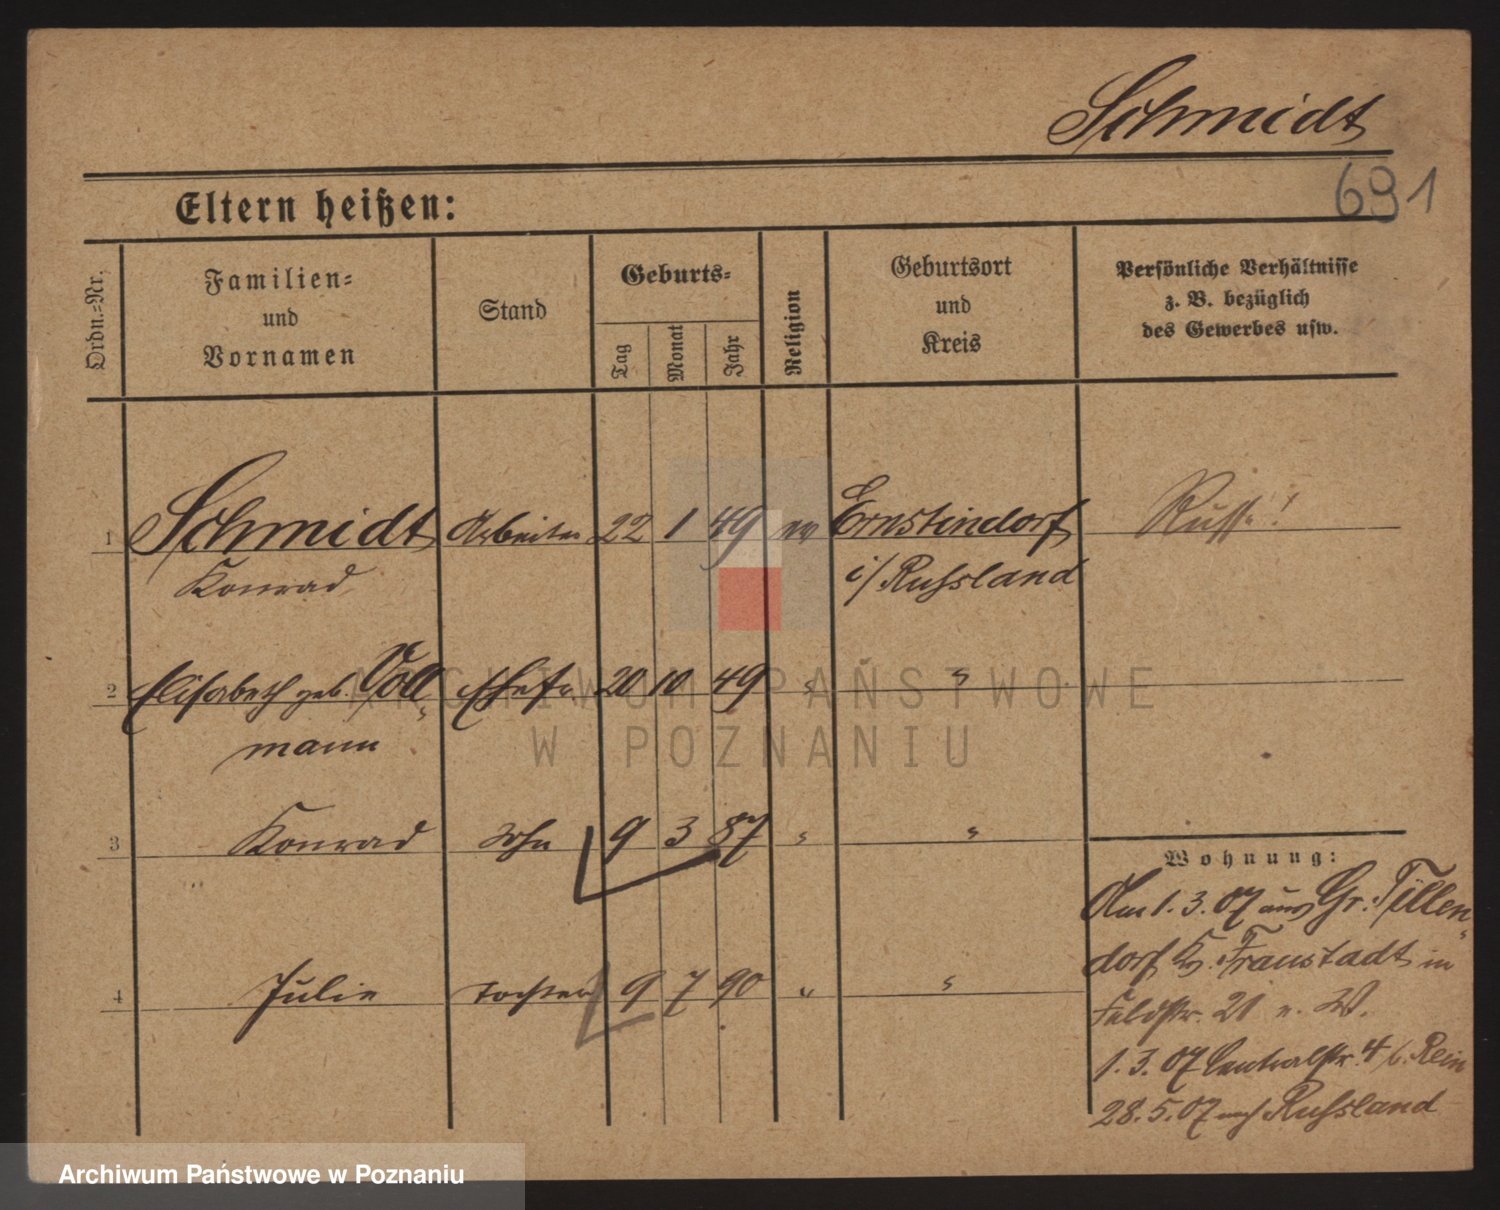 Schmidt
691
Eltern heißen:
Ordn.=Nr.
Familien=
und
Vornamen
Stand
Geburts=
Tag
Monat
Jahr
Religion
Geburtsort
und
Kreis
Persönliche Verhältnisse
z. B. bezüglich
des Gewerbes usw.
1 Schmidt Arbeiter 22 1 49 ev Ernstindorf Russe!
Konrad i/Russland
2 Elisabeth geb. Voll= Ehefr 20 10 49 " "
mann
3 Konrad Sohn 9 3 87 " "
4 Julie Tochter 9 7 90 " "
Wohnung:
Am 1. 3. 07 aus Gr. Tillen=
dorf Kr. Fraustadt in
Feldstr. 21 v. W.
1. 3. 07 Centralstr. 4 b. Rein
28. 5. 07 nach Russland
ARCHIWUM PAŃSTWOWE
W POZNANIU
Archiwum Państwowe w Poznaniu